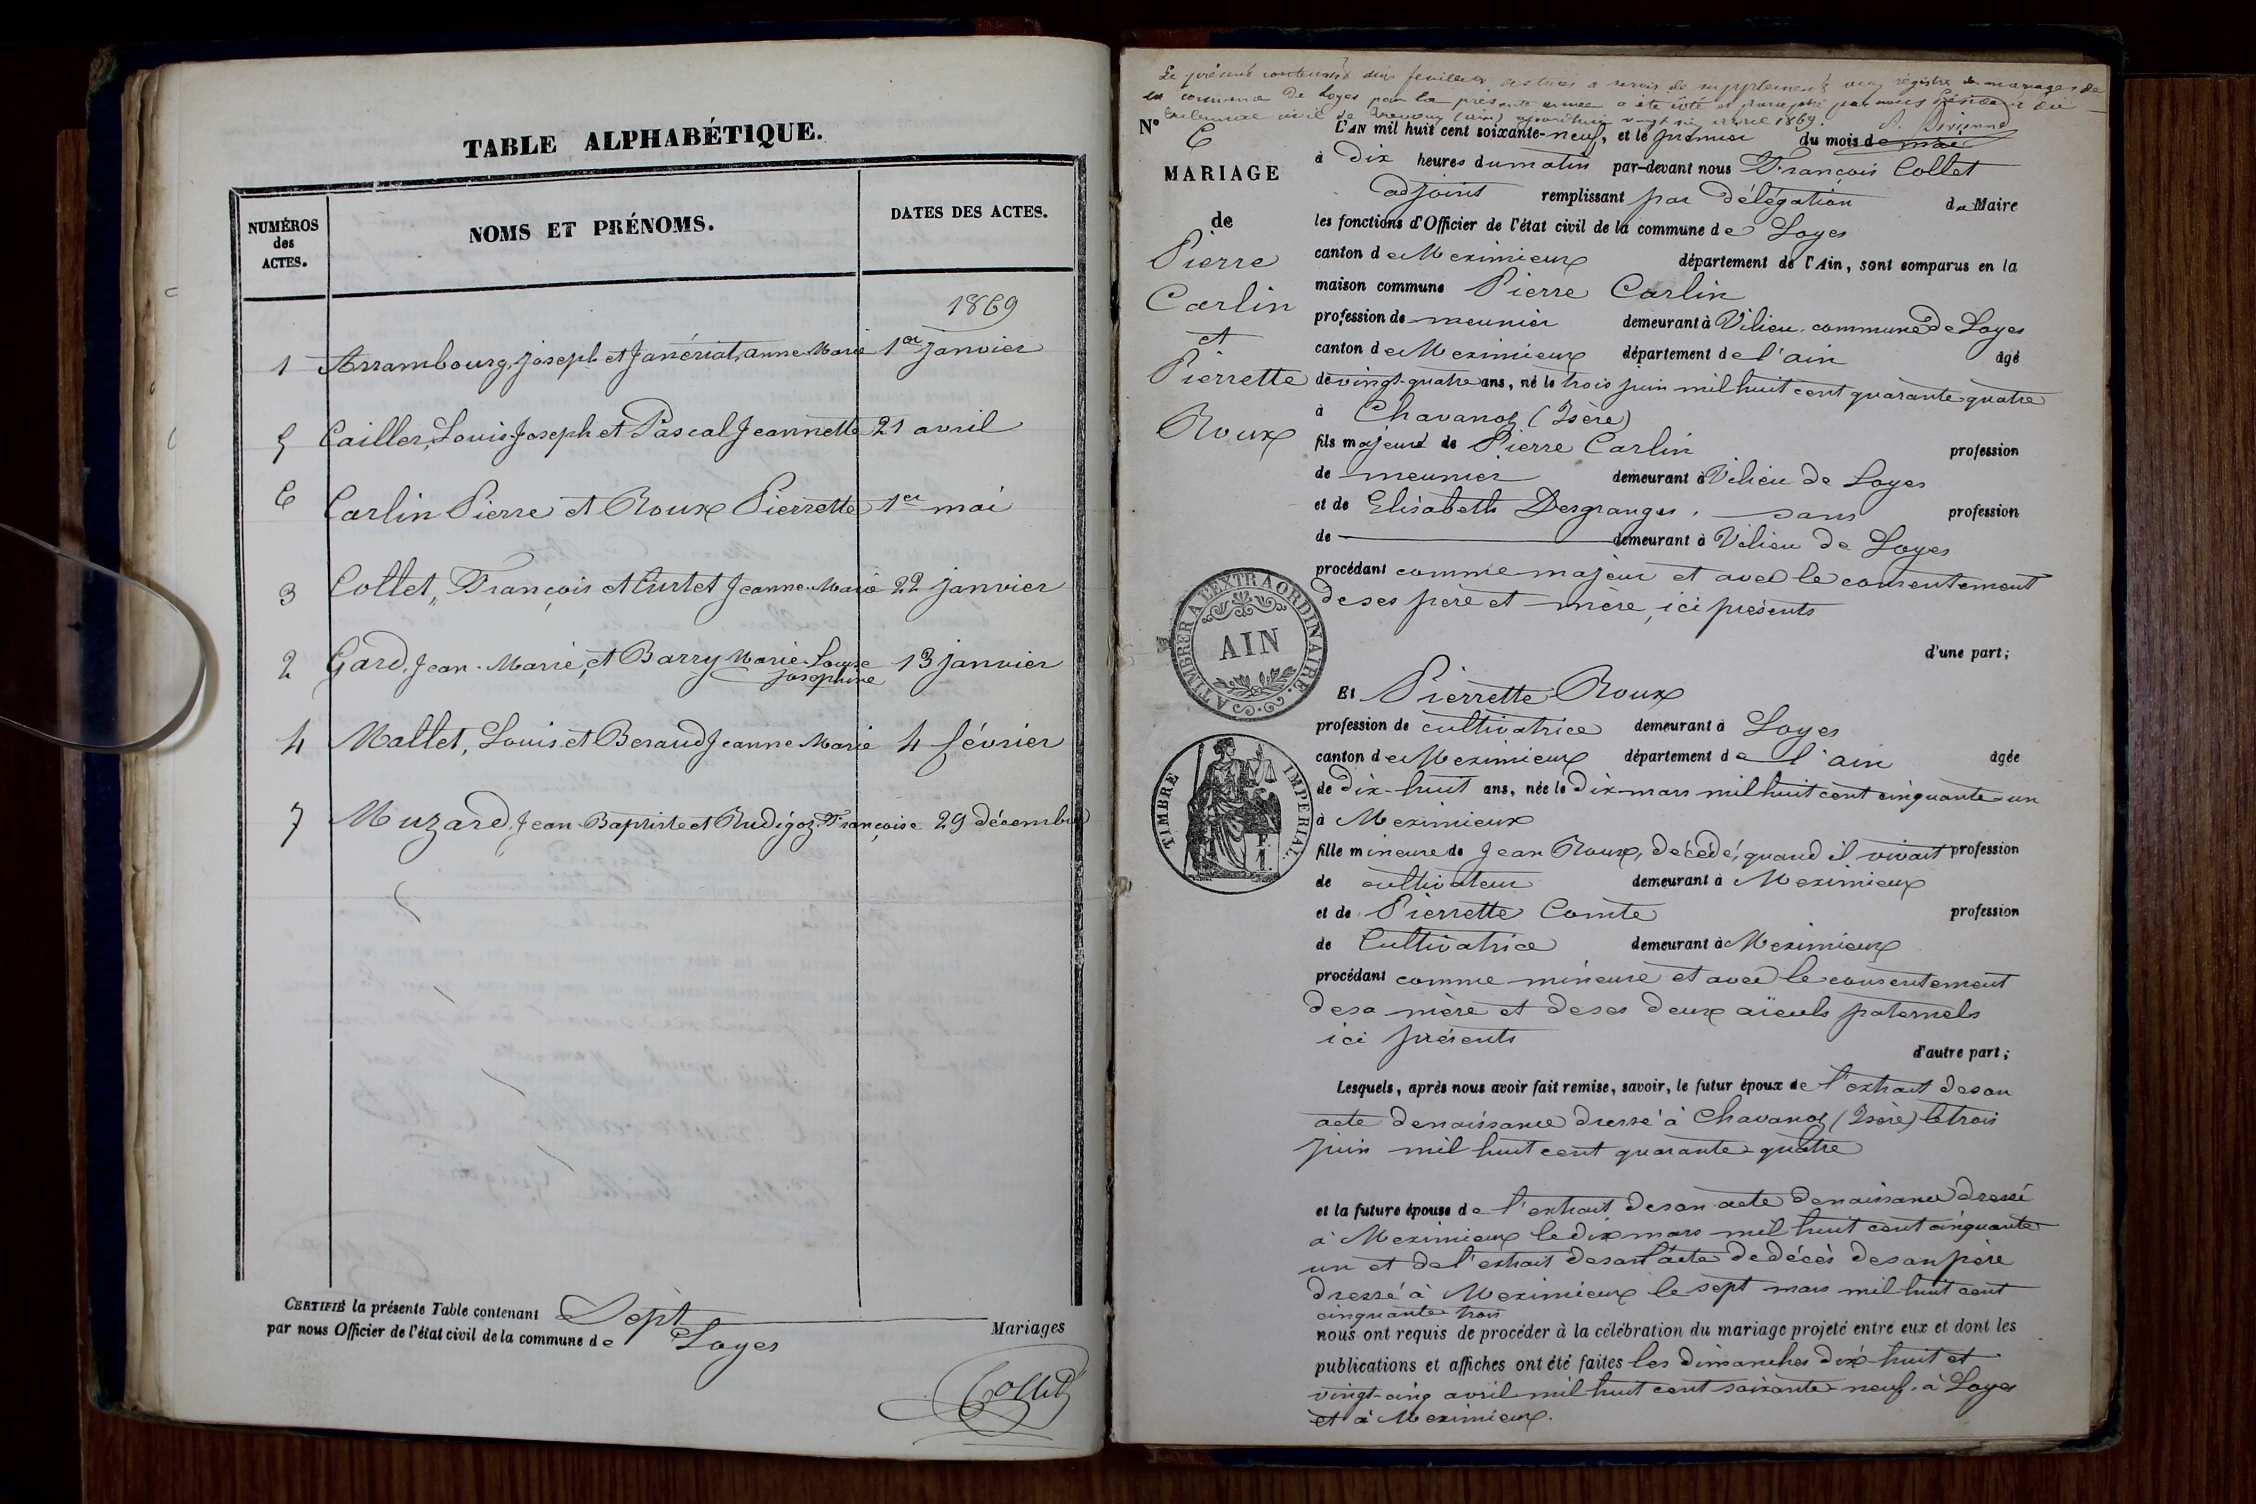 TABLE ALPHABÉTIQUE.
NUMÉROS des ACTES.
NOMS ET PRÉNOMS.
DATES DES ACTES.
1869
1 Arrambourg, Joseph et Janériat, anne Marie 1er Janvier
5 Cailler, Louis-Joseph et Pascal Jeannette 21 avril
6 Carlin Pierre et Roux Pierrette 1er mai
3 Collet, François et Curtet Jeanne-Marie 22 janvier
2 Gard, Jean-Marie, et Barry Marie-Louise Josephine 13 janvier
4 Mallet, Louis et Beraud Jeanne Marie 4 février
7 Muzard, Jean-Baptiste et Rudigoz, Françoise 29 décembre
CERTIFIÉ la présente Table contenant Sept Mariages
par nous Officier de l'état civil de la commune de Loyes
Collet
Le présent contenant dix feuillets destinés à servir de supplément aux registres de mariages de
la commune de Loyes pour la présente année a été coté et paraphé par nous Président du
tribunal civil de Trévoux (Ain) aujourd'hui vingt six avril 1869.
N° 6
MARIAGE
de
Pierre
Carlin
et
Pierrette
Roux
L'AN mil huit cent soixante-neuf, et le premier du mois de mai
à dix heures du matin par-devant nous François Collet
adjoint remplissant par délégation du Maire
les fonctions d'Officier de l'état civil de la commune de Loyes
canton de Meximieux département de l'Ain, sont comparus en la
maison commune Pierre Carlin
profession de meunier demeurant à Vilieu commune de Loyes
canton de Meximieux département de l'ain âgé
de vingt-quatre ans, né le trois juin mil huit cent quarante-quatre
à Chavanoz (Isère)
fils majeur de Pierre Carlin profession
de meunier demeurant à Vilieu de Loyes
et de Elisabeth Desgranges, sans profession
de demeurant à Vilieu de Loyes
procédant comme majeur et avec le consentement
de ses père et mère, ici présents
d'une part;
A TIMBRER A L'EXTRAORDINAIRE.
AIN
Et Pierrette Roux
profession de cultivatrice demeurant à Loyes
canton de Meximieux département de l'ain âgée
de dix-huit ans, née le dix mars mil huit cent cinquante-un
à Meximieux
TIMBRE IMPERIAL.
F. 1.
fille mineure de Jean Roux, décédé, quand il vivait profession
de cultivateur demeurant à Meximieux
et de Pierrette Comte profession
de Cultivatrice demeurant à Meximieux
procédant comme mineure et avec le consentement
de sa mère et de ses deux aïeuls paternels
ici présents
d'autre part;
Lesquels, après nous avoir fait remise, savoir, le futur époux de l'extrait de son
acte de naissance dressé à Chavanoz (Isère) le trois
juin mil huit cent quarante-quatre
et la future épouse de l'extrait de son acte de naissance dressé
à Meximieux le dix mars mil huit cent cinquante
un et de l'extrait de l'acte de décès de son père
dressé à Meximieux le sept mars mil huit cent
cinquante trois
nous ont requis de procéder à la célébration du mariage projeté entre eux et dont les
publications et affiches ont été faites les dimanches dix-huit et
vingt-cinq avril mil huit cent soixante-neuf à Loyes
et à Meximieux.